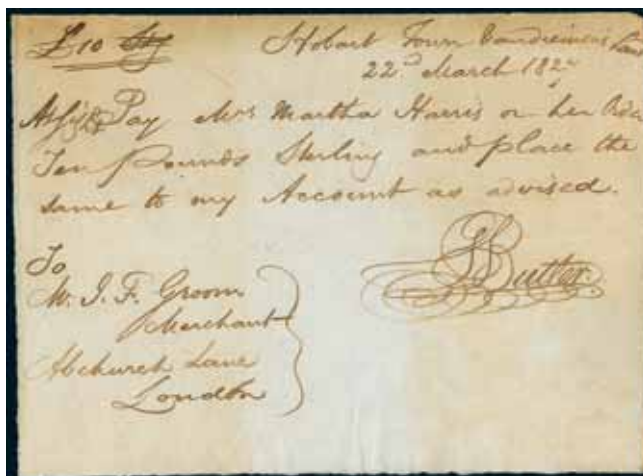 £10 Stg
Hobart Town Vandiemens Land
22d March 182
At Pay Mrs Martha Harris or her Order
Ten Pounds Sterling and place the
same to my Account as advised.
Butler
To
Mr. J. F. Groom
Merchant
Abchurch Lane
London